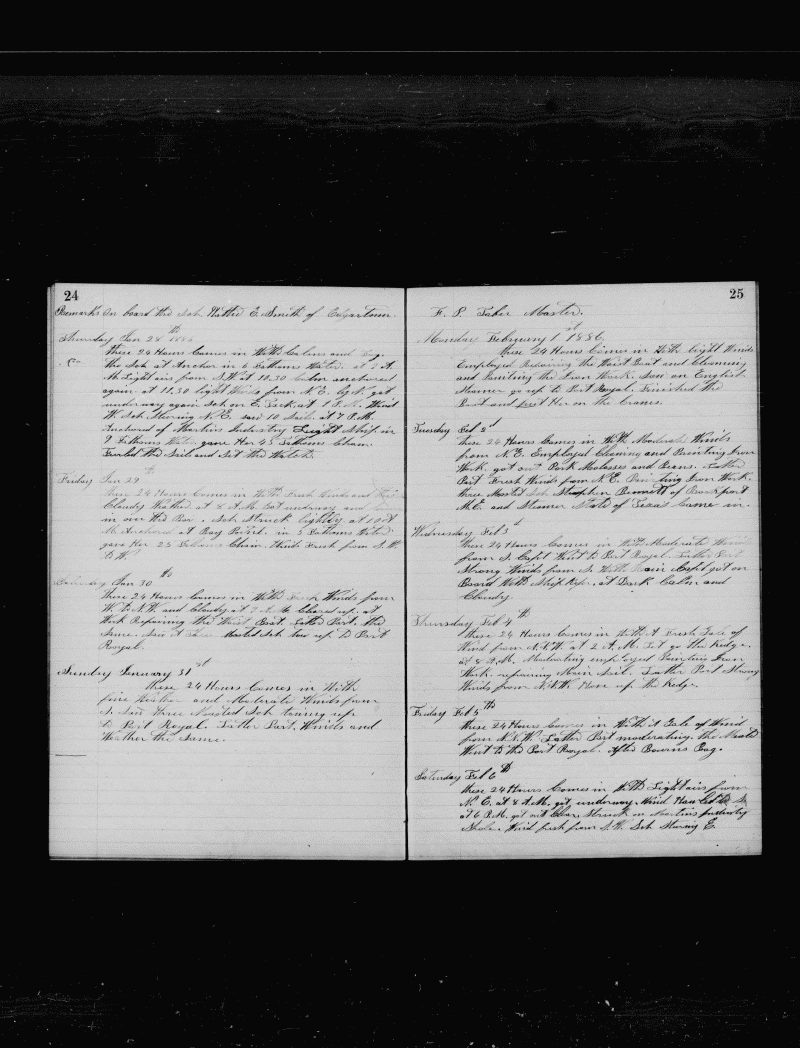 24
Remarks On board the Sch Hattie E. Smith of Edgartown
Thursday Jan 28th 1886
these 24 Hours Comes in With Calms and Fog.
the Sch at Anchor in 6 Fathoms Water. at 2 A.
M. Light airs from S.W. at 10.30 Calm anchored
again at 11.30 light Winds from N.E. by N. got
underway again Sch on E. Tack. at 1 P.M. Wind
W. Sch Steering N.E. 10 at 7 P.M.
Anchored of Martins Industry Light Ship in
9 Fathoms Water gave Her 45 Fathoms Chain.
Furled the Sails and Set the Watch.
Friday Jan 29th
these 24 Hours Comes in With Fresh Winds and
Cloudy Wather at 8 A.M. Got underway and
in over the Bar. Sch Struck lightly at 10
M. Anchored at Bay Point. in 5 Fathoms Water
gave Her 25 Fathoms Chain. Winds Fresh from S.W.
to W.
Saturday Jan 30th
these 24 Hours Comes in With Fresh Winds from
W. to N.W and Cloudy at 7 A.M. Cleared up. at
Work Repairing the Waist Boat. Latter Part the
Same. Saw A Three Masted Sch tow up to Port
Royal.
Sunday January 31st
these 24 Hours Comes in With
fine Wather and Moderate Winds from
S. Saw three Masted Sch towing up
to Port Royal. Latter Part, Winds and
Wether the Same.
25
F. P. Master.
Monday February 1st 1886.
these 24 Hours Comes in With light Winds
Employed Repairing the Waist Boat and Cleaning
and Painting the Iron Work. Saw an English
Steamer go up to Port Royal. Finished the
Boat and put Her on the Cranes.
Tuesday Feb 2d
these 24 Hours Comes in With Moderate Winds
from N.E. Employed Cleaning and Painting Iron
Work. got out Pork Molasses and Beans. Latter
Part Fresh Winds from N.E. Painting Iron Work.
three Masted Sch Stephen Bennett of Rockport
M.E. and Steamer State of Texas Came in.
Wednesday Feb 3d
these 24 Hours Comes in With Moderate Winds
from S. Capt Went to Port Royal. Latter Part
Strong Winds from S. With Rain Capt got on
Board With Ship Kpr. at Dark Calm and
Cloudy.
Thursday Feb 4th
these 24 Hours Comes in With A Fresh Gale of
Wind from N.N.W. at 2 A.M. Let go the Kedge.
at 8 A.M. Moderating employed Painting Iron
Work. repairing Main Sail. Latter Part Strong
Winds from N.N.W. Hove up the Kedge.
Friday Feb 5th
these 24 Hours Comes in With A Gale of Wind
from N.N.W. Latter Part moderating. the Mate
Went to the Port Royal. After Bowens Bag.
Saturday Feb 6th
these 24 Hours Comes in With Light airs from
N.E. at 8 A.M. got underway. Wind Hauled to S.
at 6 P.M. got out Clear Struck on Martins Industry
Shole. Wind fresh from S.W. Sch Steering E.